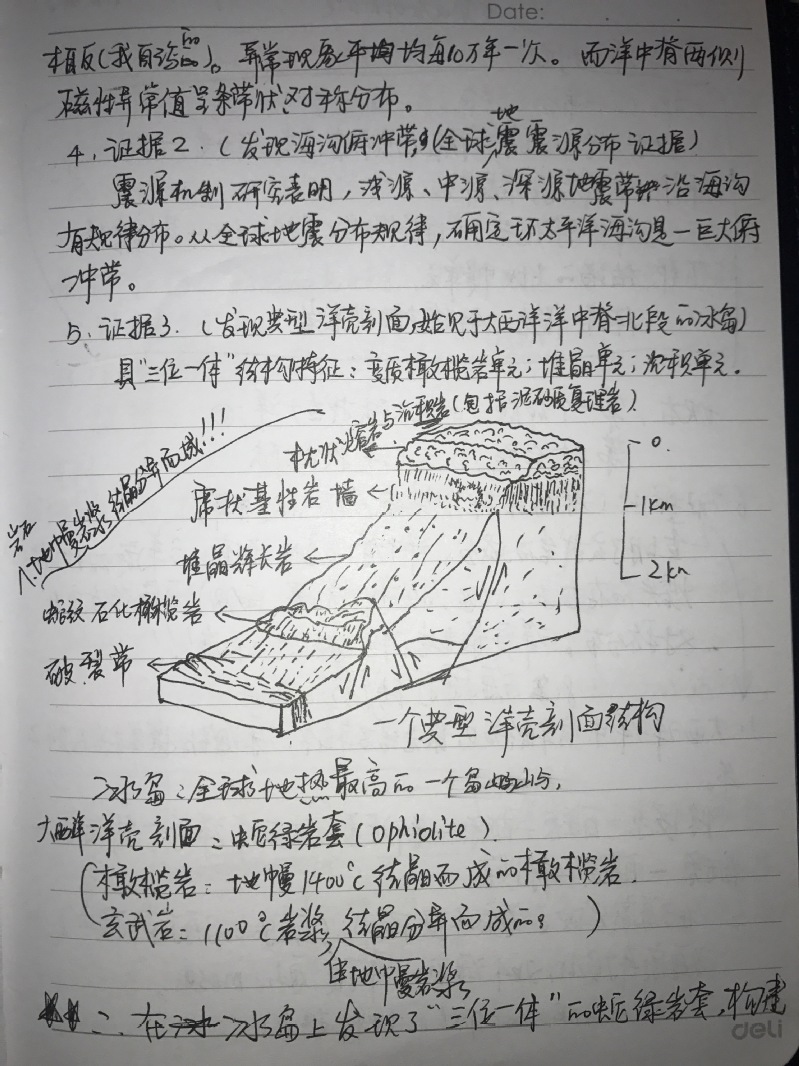 Date:
相反(我自治的)。异常现象平均均每10万年一次。而洋中脊两侧
磁性异常值呈条带状对称分布。
4、证据2.(发现海沟俯冲带,(全球地震震源分布证据)
震源机制研究表明,浅源、中源、深源地震带沿海沟
有规律分布。从全球地震分布规律,确定环太平洋海沟是一巨大俯
冲带。
5、证据3.(发现典型洋壳剖面,始见于大西洋洋中脊北段的冰岛)
具"三位一体"结构特征:变质橄榄岩单元;堆晶单元;沉积单元.
枕状熔岩与沉积岩(包括泥砂质复理岩)
席状基性岩墙
堆晶辉长岩
蛇纹石化橄榄岩
破裂带
岩石
地幔岩浆结晶分异而成!!!
0.
1km
2km
一个典型洋壳剖面结构
冰岛:全球地热最高的一个岛屿,
大西洋洋壳剖面:蛇绿岩套(ophiolite)
(橄榄岩:地幔1400℃结晶而成的橄榄岩.
玄武岩:1100℃岩浆结晶分异而成的)
由地幔岩浆
二、在冰岛上发现了"三位一体"的蛇绿岩套,构建
deli